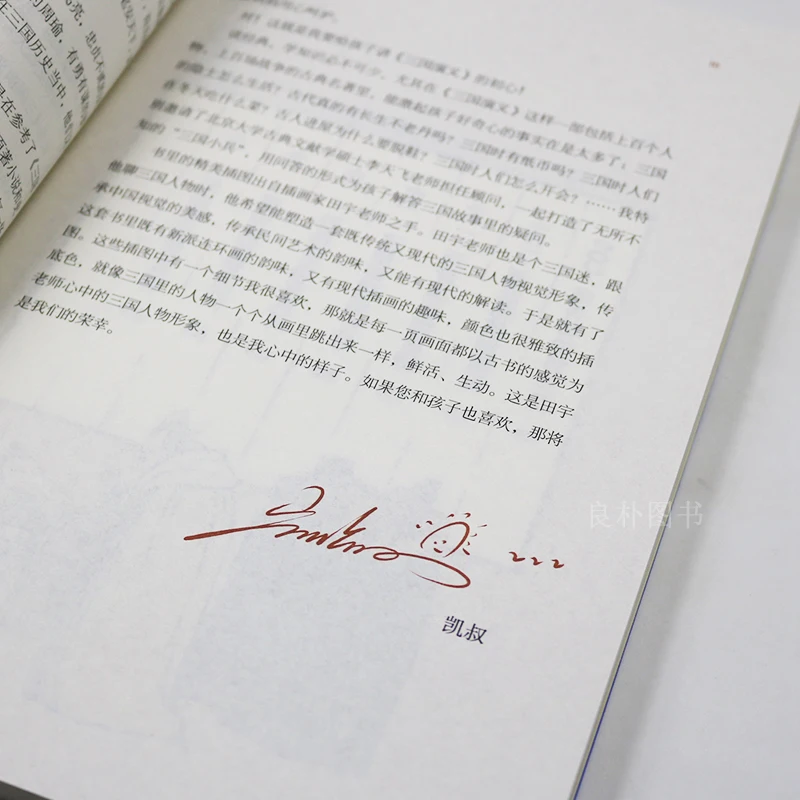 对？这就是我要给孩子讲《三国演义》的初心！
读经典，学知识必不可少，尤其在《三国演义》这样一部包括上百个人
物、上百场战争的古典名著里，能激起孩子好奇心的事实在是太多了：三国
的隐士怎么生活？古代真的有长生不老丹吗？三国时有纸币吗？三国时人们
在冬天吃什么菜？古人进屋为什么要脱鞋？三国时人们怎么开会？……我特
别邀请了北京大学古典文献学硕士李天飞老师担任顾问，一起打造了无所不
知的“三国小兵”，用问答的形式为孩子解答三国故事里的疑问。
书里的精美插图出自插画家田宇老师之手。田宇老师也是个三国迷，跟
他聊三国人物时，他希望能塑造一套既传统又现代的三国人物视觉形象，传
承中国视觉的美感，传承民间艺术的韵味，又能有现代的解读。于是就有了
这套书里既有新派连环画的韵味，又有现代插画的趣味，颜色也很雅致的插
图。这些插图中有一个细节我很喜欢，那就是每一页画面都以古书的感觉为
底色，就像三国里的人物一个个从画里跳出来一样，鲜活、生动。这是田宇
老师心中的三国人物形象，也是我心中的样子。如果您和孩子也喜欢，那将
是我们的荣幸。
凯叔
良朴图书